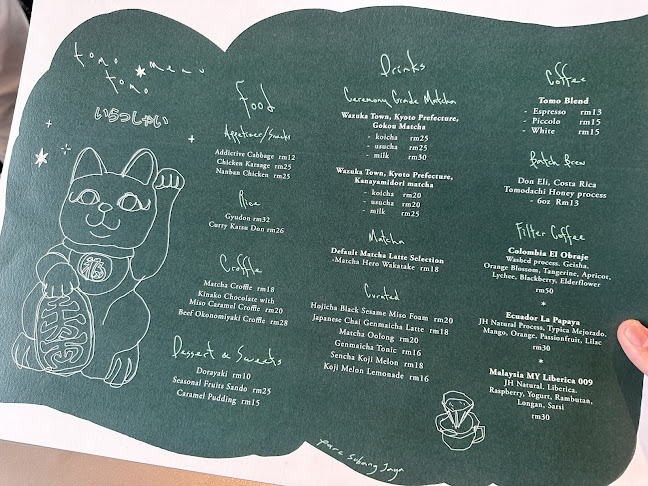 tomo menu
tomo
いらっしゃい
福
Food
Appetizer/Snacks
Addictive Cabbage rm12
Chicken Karaage rm25
Nanban Chicken rm25
Rice
Gyudon rm32
Curry Katsu Don rm26
Croffle
Matcha Croffle rm18
Kinako Chocolate with
Miso Caramel Croffle rm20
Beef Okonomiyaki Croffle rm28
Dessert & Sweets
Dorayaki rm10
Seasonal Fruits Sando rm25
Caramel Pudding rm15
Drinks
Ceremony Grade Matcha
Wazuka Town, Kyoto Prefecture,
Gokou Matcha
- koicha rm25
- usucha rm25
- milk rm30
Wazuka Town, Kyoto Prefecture,
Kanayamidori matcha
- koicha rm20
- usucha rm20
- milk rm25
Matcha
Default Matcha Latte Selection
-Matcha Hero Wakatake rm18
Curated
Hojicha Black Sesame Miso Foam rm20
Japanese Chai Genmaicha Latte rm18
Matcha Oolong rm20
Genmaicha Tonic rm16
Sencha Koji Melon rm18
Koji Melon Lemonade rm16
Coffee
Tomo Blend
- Espresso rm13
- Piccolo rm15
- White rm15
Batch Brew
Don Eli, Costa Rica
Tomodachi Honey process
- 6oz Rm13
Filter Coffee
Colombia El Obraje
Washed process. Geisha.
Orange Blossom, Tangerine, Apricot,
Lychee, Blackberry, Elderflower
rm50
*
Ecuador La Papaya
JH Natural Process, Typica Mejorado.
Mango, Orange, Passionfruit, Lilac
rm30
*
Malaysia MY Liberica 009
JH Natural. Liberica.
Raspberry, Yogurt, Rambutan,
Longan, Sarsi
rm30
Subang Jaya